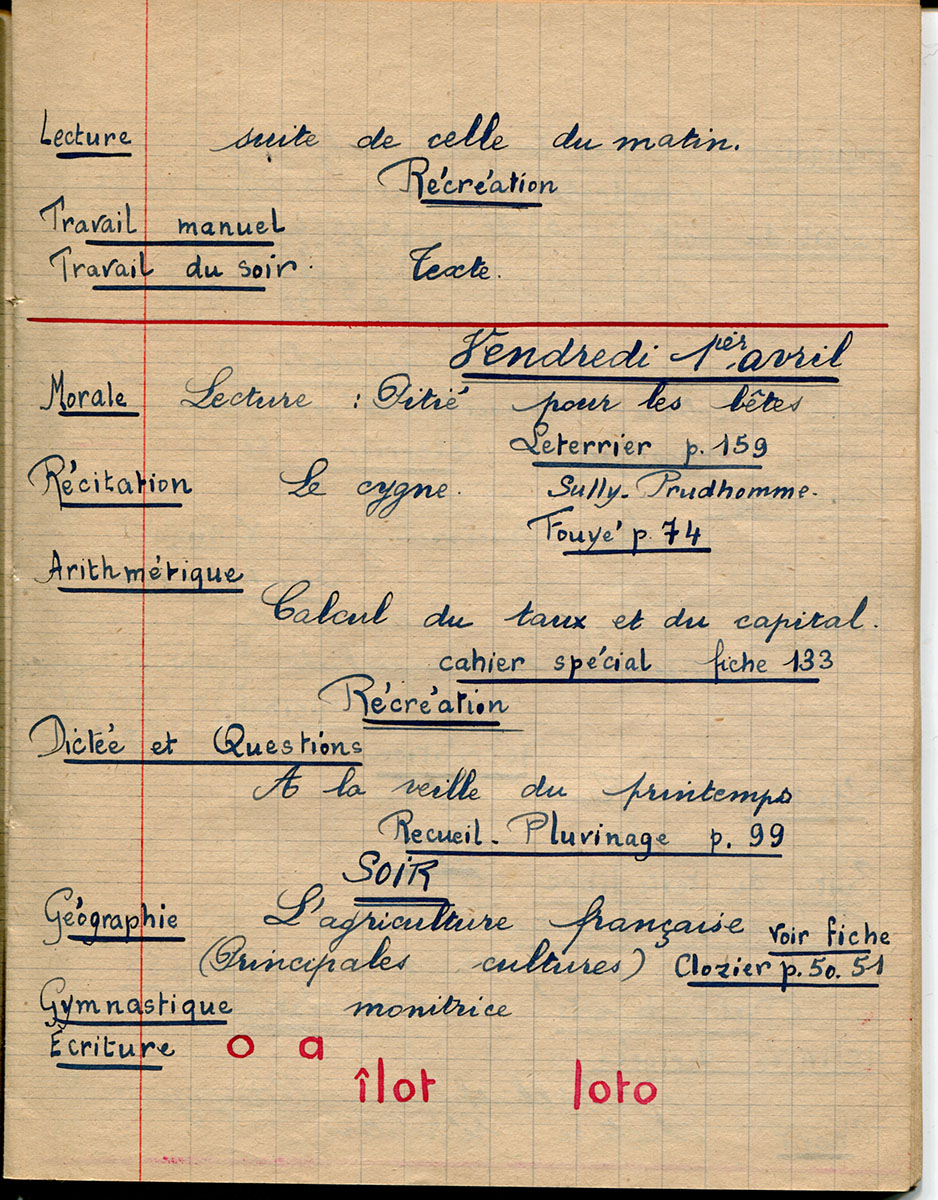 Lecture suite de celle du matin.
Récréation
Travail manuel
Travail du soir. Texte.
Vendredi 1er avril
Morale Lecture : Pitié pour les bêtes
Leterrier p. 159
Récitation Le cygne. Sully-Prudhomme.
Fouyé p. 74
Arithmétique
Calcul du taux et du capital.
cahier spécial fiche 133
Récréation
Dictée et Questions
A la veille du printemps
Recueil-Pluvinage p. 99
SOIR
Géographie L'agriculture française voir fiche
(Principales cultures) Clozier p. 50. 51
Gymnastique monitrice
Écriture o a
îlot loto